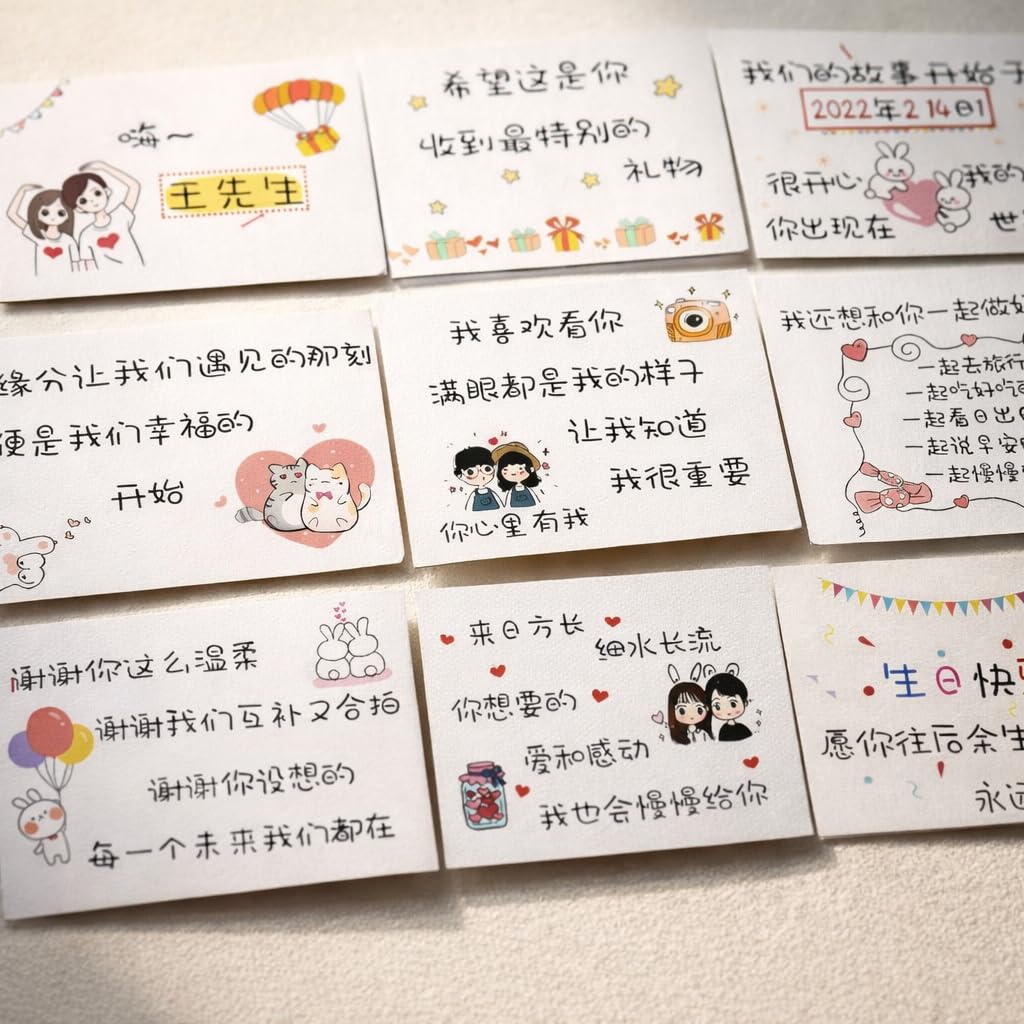 嗨~
王先生
希望这是你
收到最特别的
礼物
我们的故事开始于
2022年2 14日1
很开心 我的
你出现在 世
缘分让我们遇见的那刻
便是我们幸福的
开始
我喜欢看你
满眼都是我的样子
让我知道
我很重要
你心里有我
我还想和你一起做好
一起去旅行
一起吃好吃
一起看日出
一起说早安
一起慢慢
谢谢你这么温柔
谢谢我们互补又合拍
谢谢你设想的
每一个未来我们都在
来日方长
细水长流
你想要的
爱和感动
我也会慢慢给你
生日快
愿你往后余生
永远